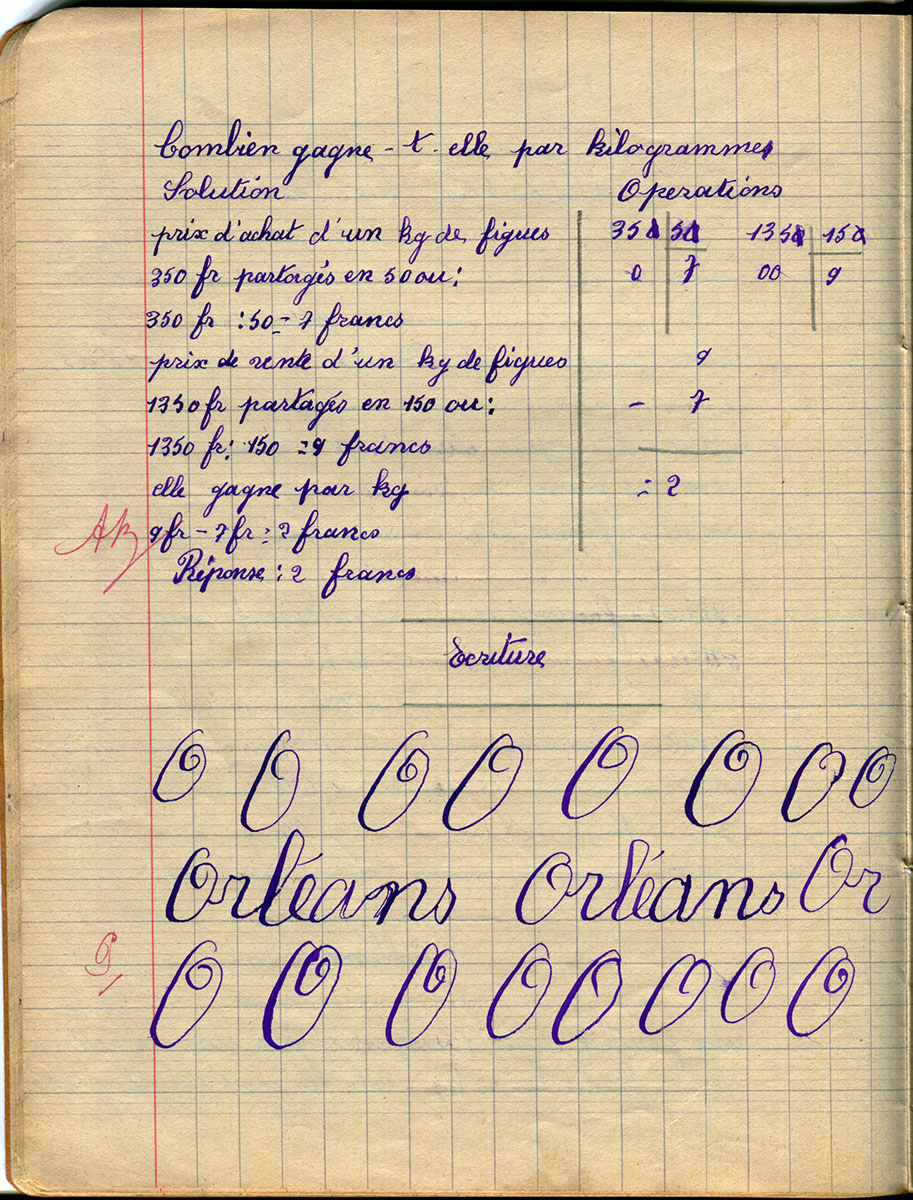 Combien gagne-t-elle par kilogramme
Solution Operations
prix d'achat d'un kg de figues 350 50 1350 150
350 fr partagés en 50 ou: 0 7 00 9
350 fr : 50 = 7 francs
prix de vente d'un kg de figues 9
1350 fr partagés en 150 ou: - 7
1350 fr : 150 = 9 francs
elle gagne par kg = 2
9 fr - 7 fr = 2 francs
Réponse : 2 francs
Ecriture
O O O O O O O O
Orléans Orléans Or
O O O O O O O O